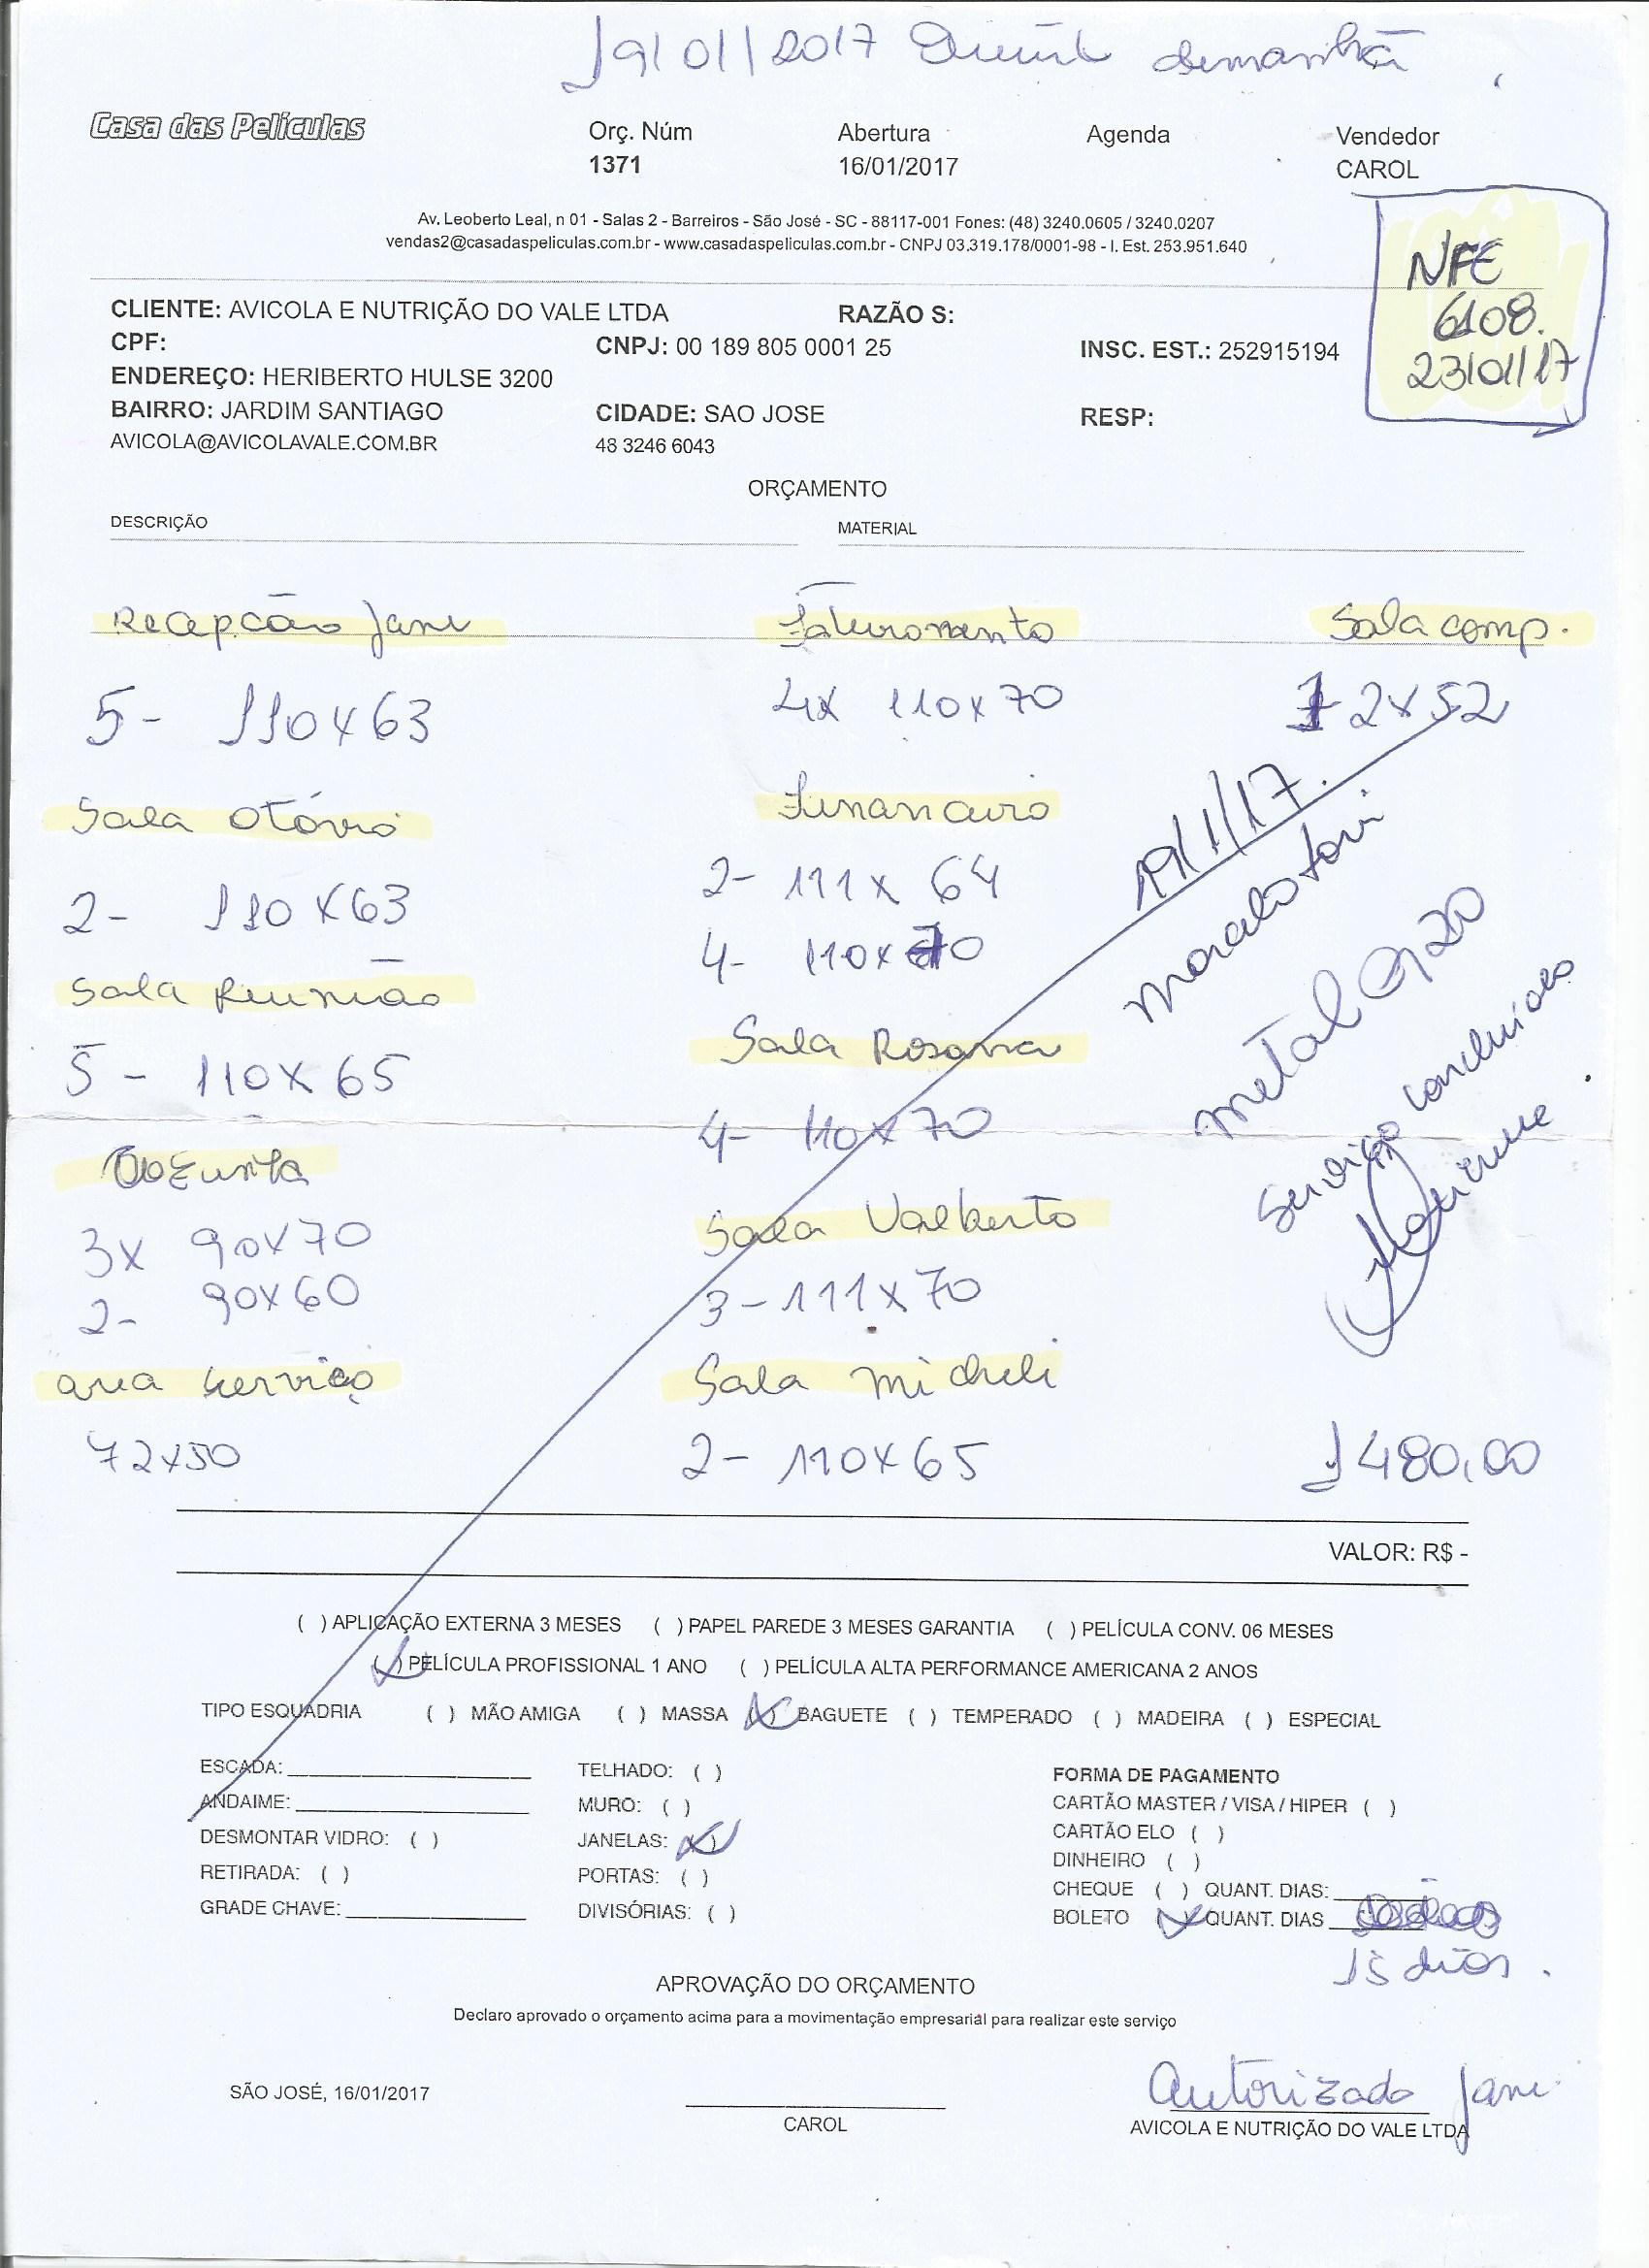 19/01/2017 Quinta demanhã
Casa das Películas
Orç. Núm Abertura Agenda Vendedor
1371 16/01/2017 CAROL
Av. Leoberto Leal, n 01 - Salas 2 - Barreiros - São José - SC - 88117-001 Fones: (48) 3240.0605 / 3240.0207
vendas2@casadaspeliculas.com.br - www.casadaspeliculas.com.br - CNPJ 03.319.178/0001-98 - I. Est. 253.951.640
NFE
6108.
23/01/17
CLIENTE: AVICOLA E NUTRIÇÃO DO VALE LTDA RAZÃO S:
CPF: CNPJ: 00 189 805 0001 25 INSC. EST.: 252915194
ENDEREÇO: HERIBERTO HULSE 3200
BAIRRO: JARDIM SANTIAGO CIDADE: SAO JOSE RESP:
AVICOLA@AVICOLAVALE.COM.BR 48 3246 6043
ORÇAMENTO
DESCRIÇÃO MATERIAL
Recepcão Jane Faturamento Sala comp.
5- 110x63 4x 110x70 72x52
Sala Otávio Financeiro
2- 110x63 2- 111x64
4- 110x70
Sala Reunião Sala Rosana
5- 110x65 4- 110x70
3x 90x70 Sala Valberto
2- 90x60 3-111x70
area serviço Sala Micheli
72x50 2- 110x65
19/1/17.
Metal G20
Serviço concluido
1480,00
VALOR: R$ -
( ) APLICAÇÃO EXTERNA 3 MESES ( ) PAPEL PAREDE 3 MESES GARANTIA ( ) PELÍCULA CONV. 06 MESES
( ) PELÍCULA PROFISSIONAL 1 ANO ( ) PELÍCULA ALTA PERFORMANCE AMERICANA 2 ANOS
TIPO ESQUADRIA ( ) MÃO AMIGA ( ) MASSA (X) BAGUETE ( ) TEMPERADO ( ) MADEIRA ( ) ESPECIAL
ESCADA: TELHADO: ( ) FORMA DE PAGAMENTO
ANDAIME: MURO: ( ) CARTÃO MASTER / VISA / HIPER ( )
DESMONTAR VIDRO: ( ) JANELAS: (X) CARTÃO ELO ( )
RETIRADA: ( ) PORTAS: ( ) DINHEIRO ( )
CHEQUE ( ) QUANT. DIAS:
GRADE CHAVE: DIVISÓRIAS: ( ) BOLETO (X) QUANT. DIAS
15 dias.
APROVAÇÃO DO ORÇAMENTO
Declaro aprovado o orçamento acima para a movimentação empresarial para realizar este serviço
Autorizado Jane
SÃO JOSÉ, 16/01/2017
CAROL AVICOLA E NUTRIÇÃO DO VALE LTDA